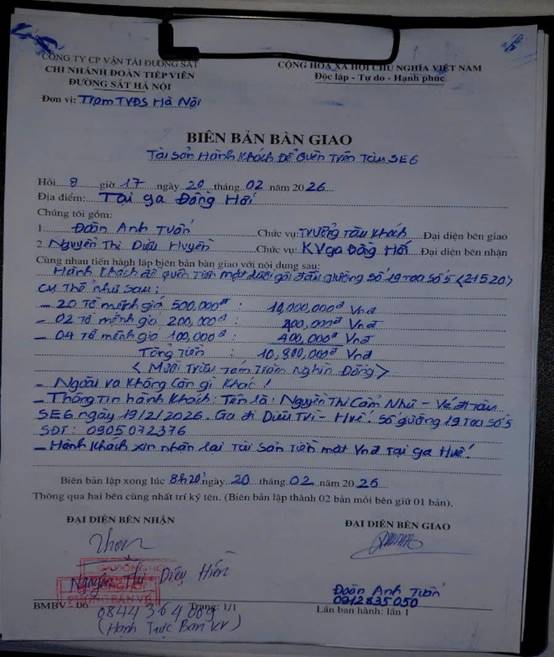 CÔNG TY CP VẬN TẢI ĐƯỜNG SẮT
CHI NHÁNH ĐOÀN TIẾP VIÊN
ĐƯỜNG SẮT HÀ NỘI
Đơn vị: Trạm TVĐS Hà Nội
CỘNG HÒA XÃ HỘI CHỦ NGHĨA VIỆT NAM
Độc lập - Tự do - Hạnh phúc
BIÊN BẢN BÀN GIAO
Tài Sản Hành Khách Để Quên Trên Tàu SE6
Hồi 8 giờ 17 ngày 20 tháng 02 năm 2026
Địa điểm: Tại ga Đồng Hới
Chúng tôi gồm:
1. Đoàn Anh Tuấn Chức vụ: Trưởng Tàu Khách Đại diện bên giao
2. Nguyễn Thị Diệu Huyền Chức vụ: KV ga Đồng Hới Đại diện bên nhận
Cùng nhau tiến hành lập biên bản bàn giao với nội dung sau:
Hành Khách để quên Tiền mặt dưới gối đầu giường Số 19 Toa Số 5 <21520>
Cụ Thể như sau:
- 20 Tờ mệnh giá 500,000đ : 10,000,000đ Vnđ
- 02 Tờ mệnh giá 200,000đ : 400,000đ Vnđ
- 04 Tờ mệnh giá 100,000đ : 400,000đ Vnđ
Tổng Tiền : 10,800,000đ Vnđ
< Mười Triệu Tám Trăm Nghìn Đồng>
- Ngoài ra Không Còn gì Khác!
- Thông tin hành Khách: Tên là: Nguyễn Thị Cẩm Nhũ - Vé đi tàu
SE6 ngày 19/2/2026. Ga đi Diêu Trì - Huế. Số giường 19 Toa Số 5
SĐT: 0905072376
- Hành Khách xin nhận lại Tài Sản Tiền mặt Vnđ Tại ga Huế!
Biên bản lập xong lúc 8h20' ngày 20 tháng 02 năm 2026
Thông qua hai bên cùng nhất trí ký tên. (Biên bản lập thành 02 bản mỗi bên giữ 01 bản).
ĐẠI DIỆN BÊN NHẬN
ĐẠI DIỆN BÊN GIAO
Nguyễn Thị Diệu Hiền
Đoàn Anh Tuấn
0912835050
BMBV - 06
Trang: 1/1
Lần ban hành: lần 1
(Hành Trực Ban KV)